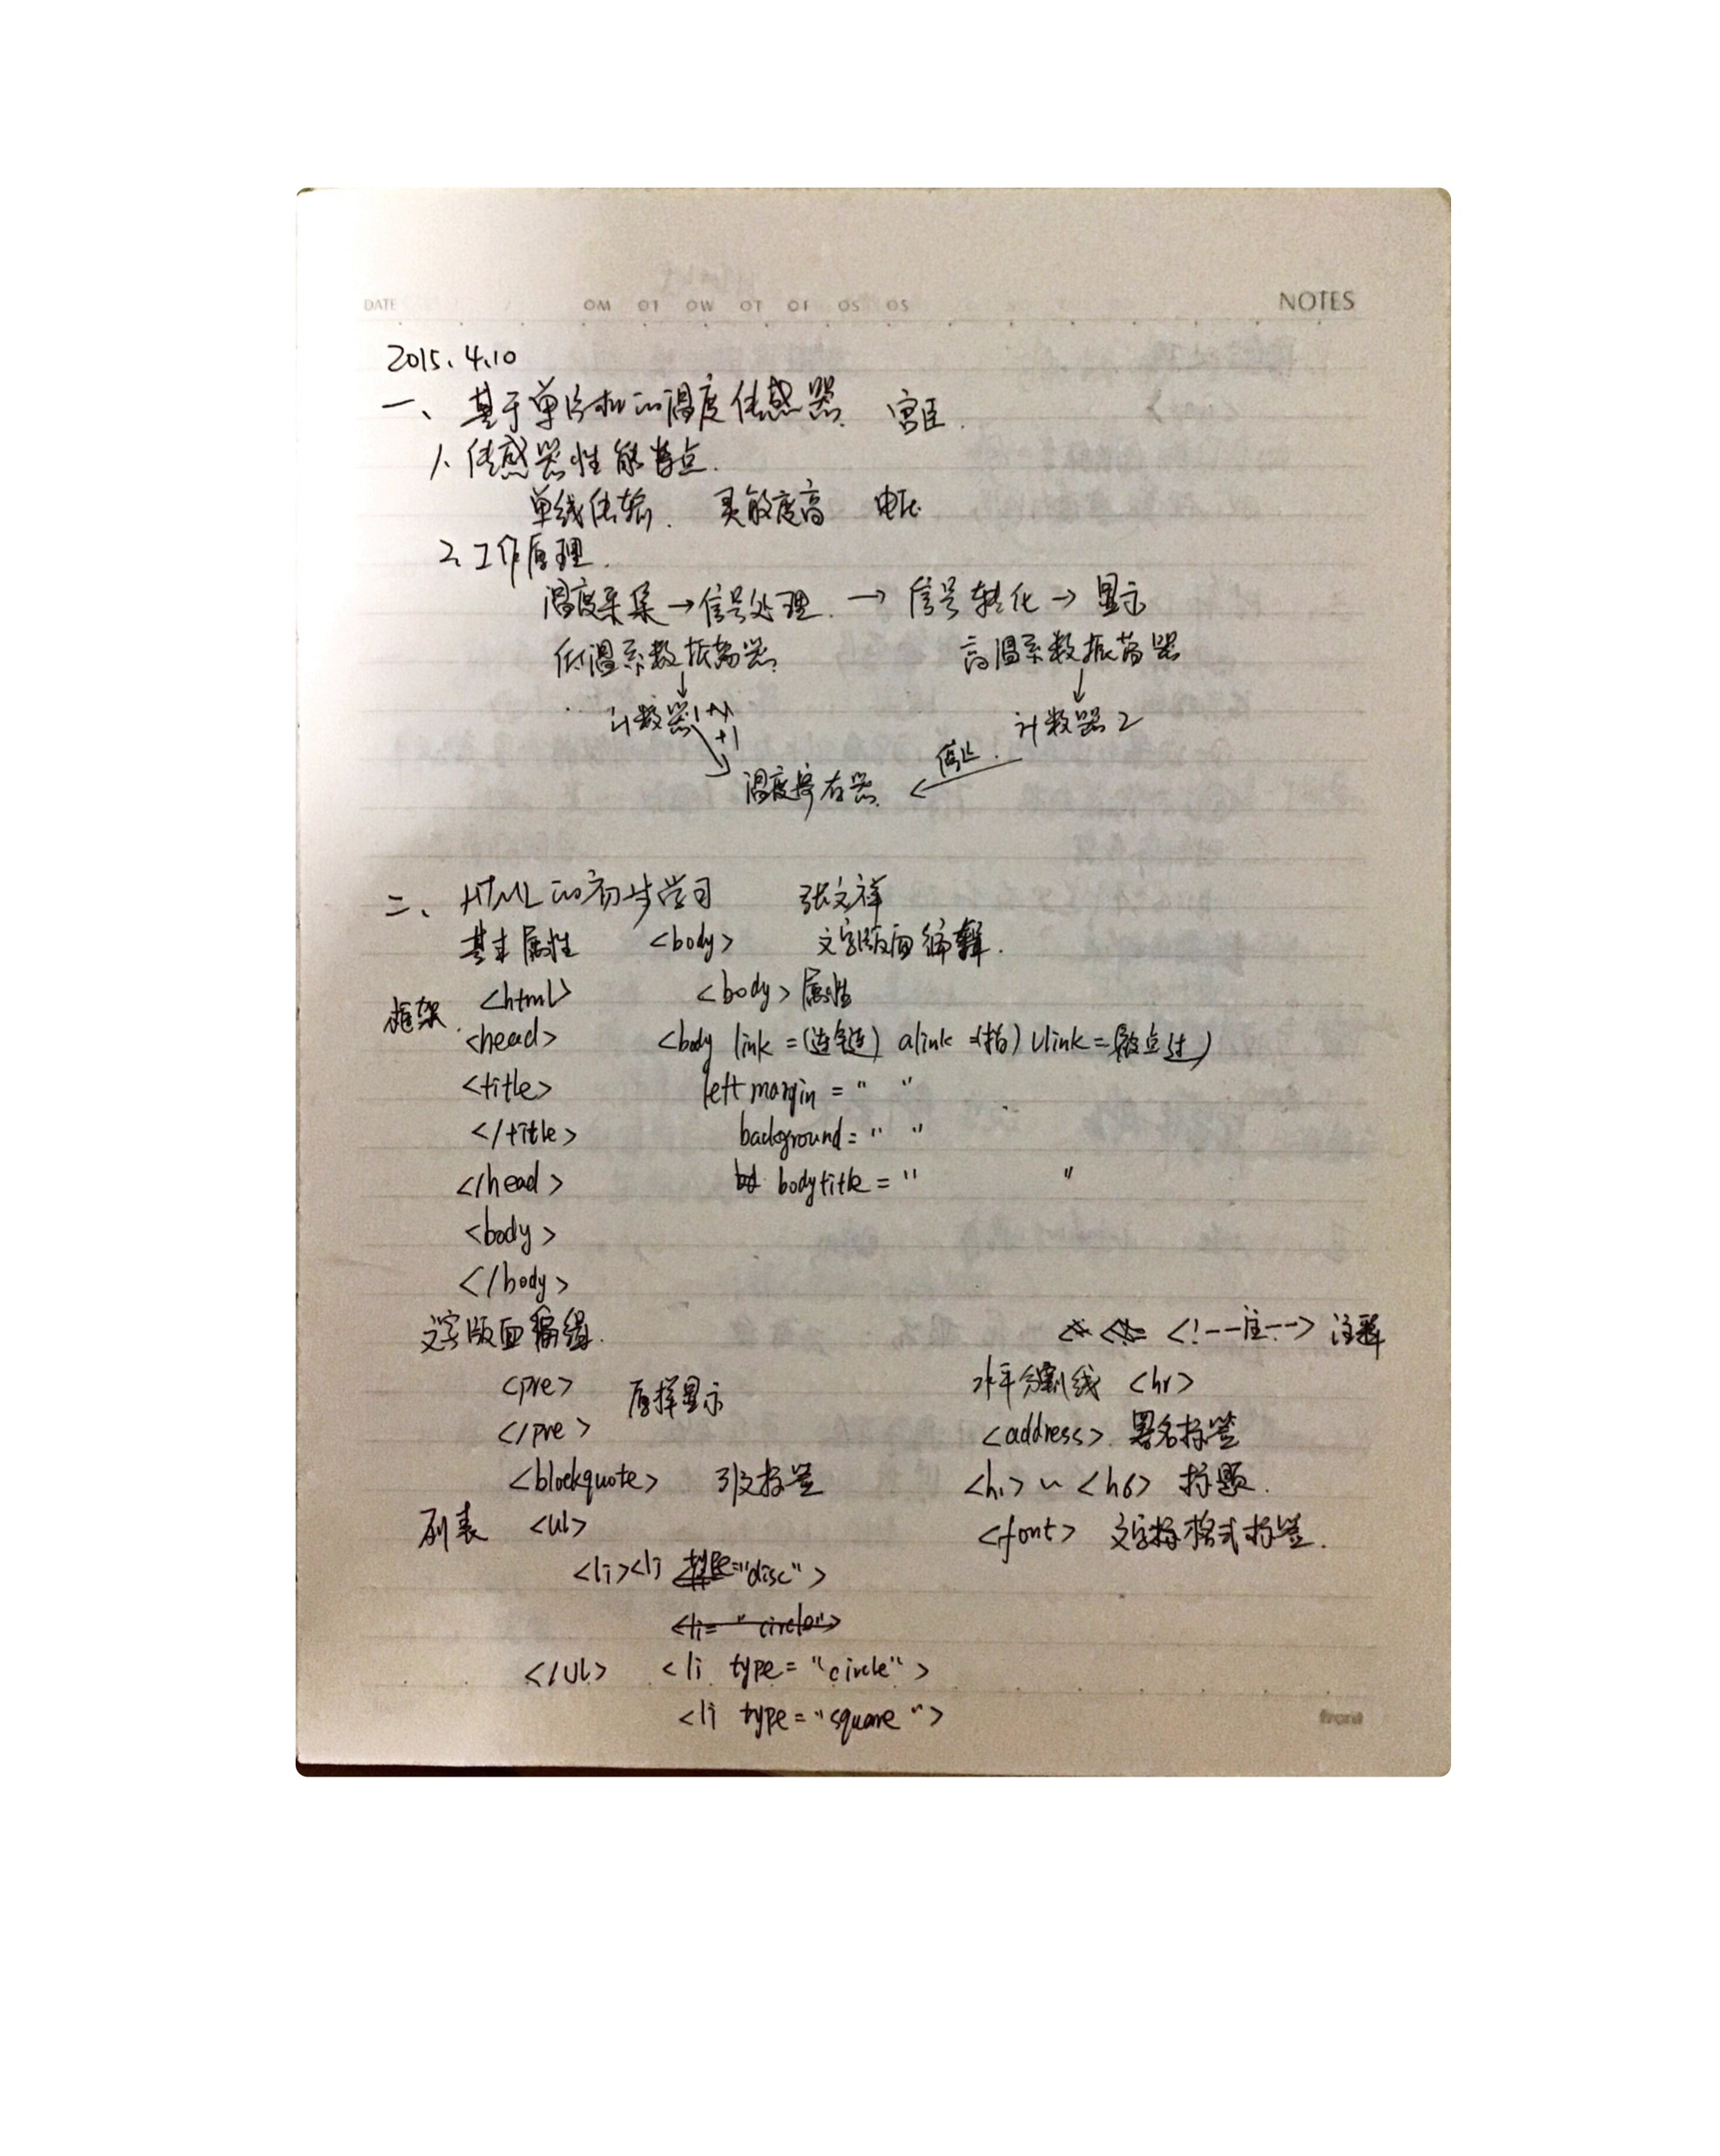 DATE OM OT OW OT OF OS OS NOTES
2015.4.10
一、基于单片机的温度传感器. 宫臣.
1.传感器性能特点.
单线传输. 灵敏度高 电压
2.工作原理.
温度采集→信号处理.→信号转化→显示
低温系数振荡器. 高温系数振荡器
↓ ↓
计数器1 +1 计数器2
温度寄存器 ← 停止.
二、HTML的初步学习 张文祥
基本属性 <body> 文字版面编辑.
框架. <html> <body>属性
<head> <body link=(连链) alink=(拍) Vlink=(被点过)
<title> left margin = " "
</title> background = " "
</head> bodytitle = " "
<body>
</body>
文字版面编缉. <!--注--> 注释
<pre> 原样显示 水平分割线 <hr>
</pre> <address>. 署名标签
<blockquote> 引文标签 <h1>~<h6> 标题.
列表 <ul> <font> 文字格式标签.
<li><li "disc">
<li="circle">
</ul> <li type="circle">
<li type="square">
front